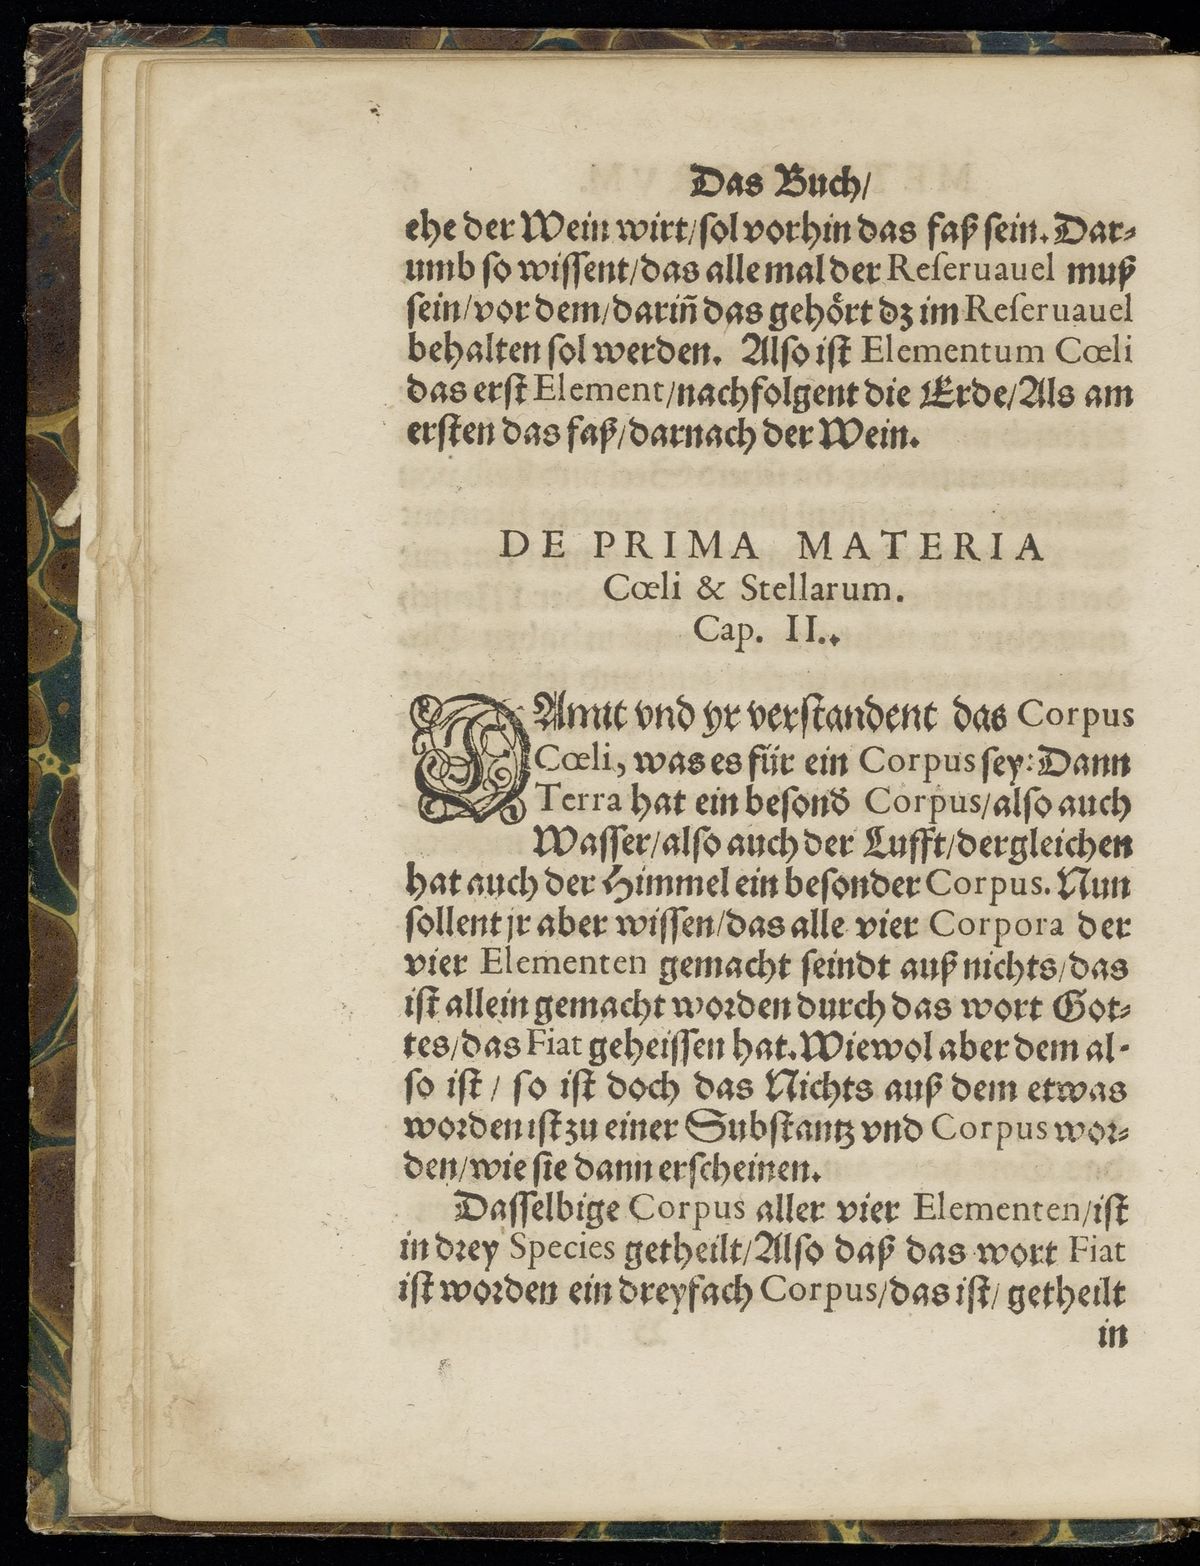 Das Buch/
ehe der Wein wirt/sol vorhin das faß sein. Dar⸗
umb so wissent/das alle mal der Reſeruauel muß
sein/vor dem/dariñ das gehört dz im Reſeruauel
behalten sol werden. Also ist Elementum Cœli
das erst Element/nachfolgent die Erde/Als am
ersten das faß/darnach der Wein.
DE PRIMA MATERIA
Cœli & Stellarum.
Cap. II.
DAmit vnd yr verstandent das Corpus
Cœli, was es für ein Corpus sey: Dann
Terra hat ein besond̃ Corpus/also auch
Wasser/also auch der Lufft/dergleichen
hat auch der Himmel ein besonder Corpus. Nun
sollent jr aber wissen/das alle vier Corpora der
vier Elementen gemacht seindt auß nichts/das
ist allein gemacht worden durch das wort Got⸗
tes/das Fiat geheissen hat. Wiewol aber dem al-
so ist/ so ist doch das Nichts auß dem etwas
worden ist zu einer Substantz vnd Corpus wor⸗
den/wie sie dann erscheinen.
Dasselbige Corpus aller vier Elementen/ist
in drey Species getheilt/Also daß das wort Fiat
ist worden ein dreyfach Corpus/das ist/ getheilt
in